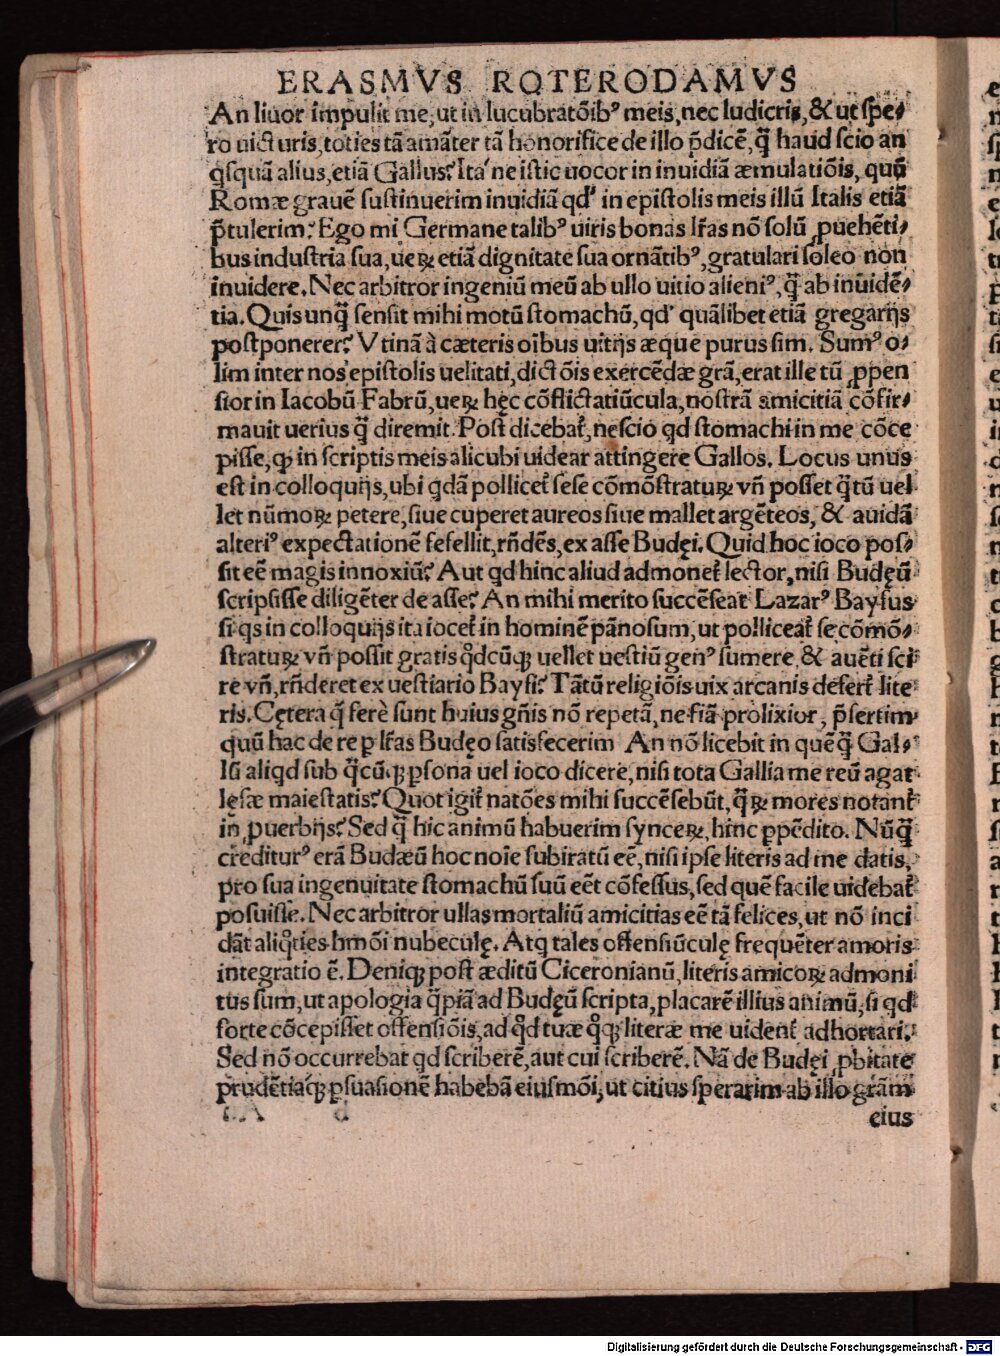 ERASMVS ROTERODAMVS
An liuor impulit me, ut in lucubratõibꝰ meis, nec ludicris, & ut ſpe⸗
ro uicturis, toties tã amãter tã honorifice de illo p̃dicẽ, q̃ haud ſcio an
q̇ſquã alius, etiã Gallus? Ita ne iſtic uocor in inuidiã æmulatiõis, quũ
Romæ grauẽ ſuſtinuerim inuidiã qd' in epiſtolis meis illũ Italis etiã
p̃tulerim? Ego mi Germane talibꝰ uiris bonas lr̃as nõ ſolũ ꝓuehẽti⸗
bus induſtria ſua, ueꝝ etiã dignitate ſua ornãtibꝰ, gratulari ſoleo non
inuidere. Nec arbitror ingeniũ meũ ab ullo uitio alieniꝰ, q̃ ab inuidẽ⸗
tia. Quis unq̃ ſenſit mihi motũ ſtomachũ, qd' quãlibet etiã gregarijs
poſtponerer? Vtinã à cæteris oĩbus uitijs æque purus ſim. Sumꝰ o⸗
lim inter nos epiſtolis uelitati, dictõis exercẽdæ grã, erat ille tũ ꝓppen
ſior in Iacobũ Fabrũ, ueꝝ hęc cõflictatiũcula, noſtrã amicitiã cõfir⸗
mauit uerius q̃ diremit. Poſt dicebat̃, neſcio qd ſtomachi in me cõce
piſſe, ꝙ in ſcriptis meis alicubi uidear attingere Gallos. Locus unus
eſt in colloquijs, ubi q̇dã pollicet̃ ſeſe cõmõſtratuꝝ vñ poſſet q̃tũ uel
let nũmoꝝ petere, ſiue cuperet aureos ſiue mallet argẽteos, & auidã
alteriꝰ expectationẽ fefellit, rñdẽs, ex aſſe Budęi. Quid hoc ioco poſ⸗
ſit eẽ magis innoxiũ? Aut qd hinc aliud admonet̃ lector, niſi Budęũ
ſcripſiſſe diligẽter de aſſe? An mihi merito ſuccẽſeat Lazarꝰ Bayfus
ſi q̇s in colloquijs ita iocet̃ in hominẽ pãnoſum, ut polliceat̃ ſe cõmõ⸗
ſtratuꝝ vñ poſſit gratis q̊dcũq; uellet ueſtiũ genꝰ ſumere, & auẽti ſci
re vñ, rñderet ex ueſtiario Bayfi? Tãtũ religiõis uix arcanis defert̃ lite
ris. Cętera q̃ ferè ſunt huius gñis nõ repetã, ne fiã prolixior, p̃ſertim
quũ hac de re ꝑ lr̃as Budęo ſatisfecerim An nõ licebit in quẽq̃ Gal⸗
lũ aliqd ſub q̃cũq; ꝑſona uel ioco dicere, niſi tota Gallia me reũ agat
lęſæ maieſtatis? Quot igit̃ natões mihi ſuccẽſebũt, q̃ꝝ mores notant̃
in ꝓuerbijs? Sed q̃ hic animũ habuerim ſynceꝝ, hinc ꝑpẽdito. Nũq̃
crediturꝰ erã Budæũ hoc noĩe ſubiratũ eẽ, niſi ipſe literis ad me datis,
pro ſua ingenuitate ſtomachũ ſuũ eẽt cõfeſſus, ſed quẽ facile uidebat̃
poſuiſſe. Nec arbitror ullas mortaliũ amicitias eẽ tã felices, ut nõ inci
dãt aliq̊ties hmõi nubeculę. Atq tales offenſiũculę frequẽter amoris
integratio ẽ. Deniq; poſt æditũ Ciceronianũ, literis amicoꝝ admoni
tus ſum, ut apologia q̃piã ad Budęũ ſcripta, placarẽ illius animũ, ſi qd
forte cõcepiſſet offenſiõis, ad q̊d tuæ q̊q; literæ me uident̃ adhortari.
Sed nõ occurrebat qd ſcriberẽ, aut cui ſcriberẽ. Nã de Budęi ꝓbitate
prudẽtiaq; ꝑſuaſionẽ habebã eiuſmõi, ut citius ſperarim ab illo grãm
eius
Digitalisierung gefördert durch die Deutsche Forschungsgemeinschaft - DFG